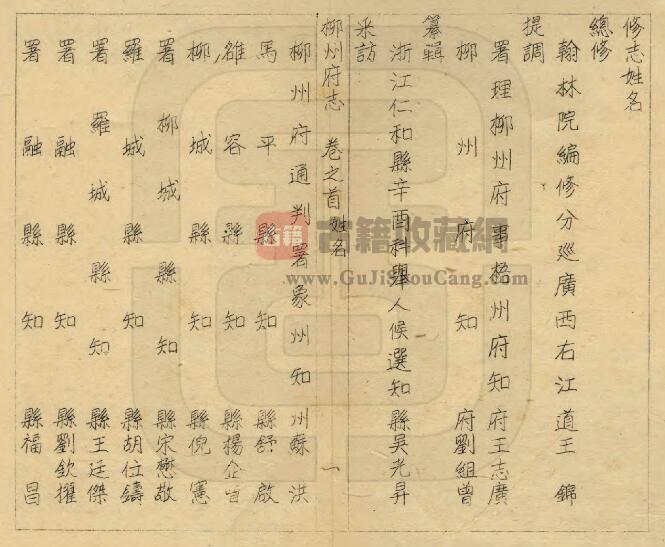 修志姓名
總修
翰林院編修分巡廣西右江道王錦
提調
署理柳州府事梧州府知府王志廣
柳州府知府劉組曾
纂輯
浙江仁和縣辛酉科舉人候選知縣吳光昇
采訪
柳州府志 卷之首 姓名 一
柳州府通判署象州知州蘇洪
馬平縣知縣舒啟
雒容縣知縣楊
柳城縣知縣倪憲
署柳城縣知縣宋懋敬
羅城縣知縣胡位鑄
署羅城縣知縣王廷傑
署融縣知縣劉欽擢
署融縣知縣福昌
古籍 古籍收藏網
www.GuJiShouCang.com